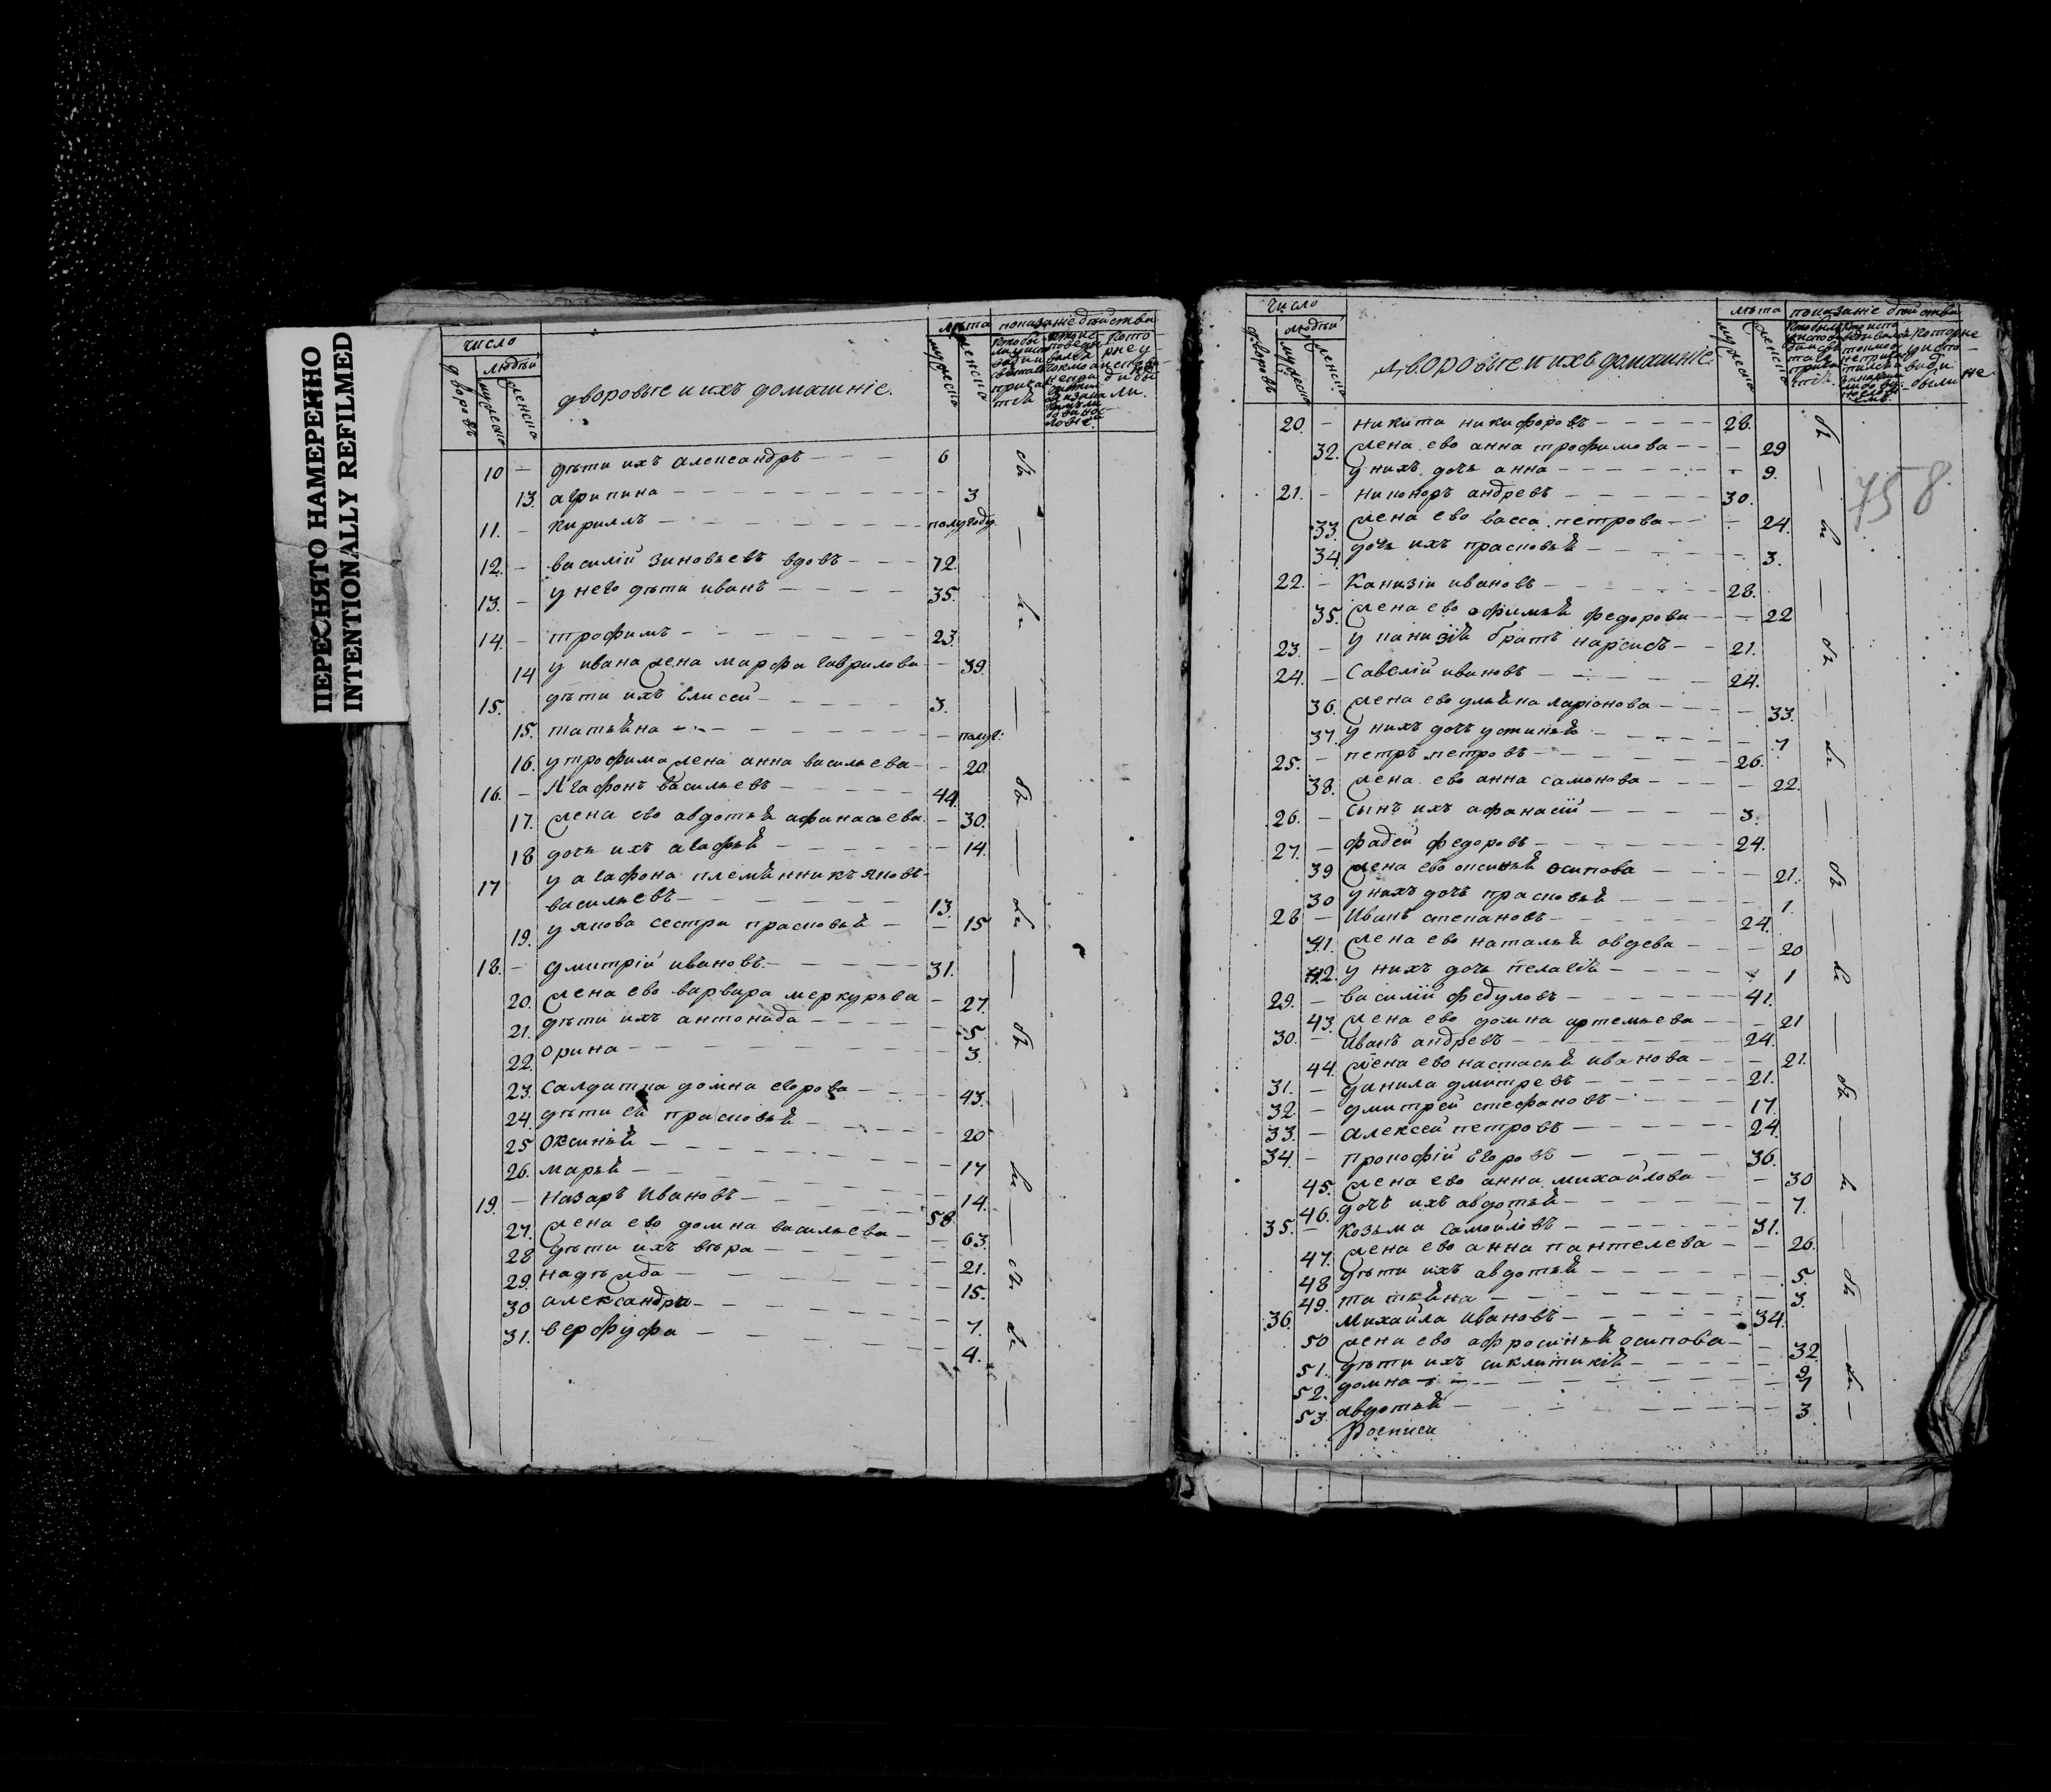 ПЕРЕСНЯТО НАМЕРЕННО
INTENTIONALLY REFILMED
число
людѣй
дворовъ
мужеска
женска
дворовые и ихъ домашніе.
лѣта
мужеска
женска
показание дѣйства
10 — дѣти ихъ александръ — 6
13. агрипина — 3
11. — кириллъ — полугоду
12. — василій зиновьевъ вдовъ — 72.
13. — у него дѣти иванъ — 35.
14. — трофимъ — 23.
14 у ивана жена марфа гаврилова — 39.
15. дѣти ихъ елисеи — 3.
15. татьяна — полуг:
16. у трофима жена анна васильева — 20.
16. — Агафонъ васильевъ — 44.
17. жена ево авдотья афанасьева — 30.
18 дочь ихъ агафья — 14.
17 у агафона племянникъ яковъ
васильевъ — 13.
19. у якова сестра прасковья — 15
18. — дмитрій ивановъ — 31.
20. жена ево варвара меркурьва — 27.
21. дѣти ихъ антонида — 5.
22. орина — 3.
23. салдатка домна егорова — 43.
24. дѣти еи прасковья — 20
25 оксинья — 17
26. марья — 14.
19. — назаръ ивановъ — 58.
27. жена ево домна васильева — 63.
28 дѣти ихъ вѣра — 21.
29. надѣжда — 15.
30 александра — 7.
31. — 4.
число
людѣй
дворовъ
мужеска
женска
дворовые и ихъ домашніе
лѣта
мужеска
женска
показаніе дѣйства
758.
20. — никита никифоровъ — 28.
32. жена ево анна трофимова — 29
у нихъ дочь анна — 9.
21. — никоноръ андревъ — 30.
33. жена ево васса петрова — 24.
34 дочь ихъ прасковья — 3.
22. — ивановъ — 28.
35. жена ево офимья федорова — 22
23. — у братъ — 21.
24. — савелій ивановъ — 24.
36. жена ево ульяна ларіонова — 33.
37. у нихъ дочь устинья — 7
25. — петръ петровъ — 26.
38. жена ево анна самонова — 22.
26. — сынъ ихъ афанасіи — 3.
27. — фадеи федоровъ — 24.
39 жена ево оксинья осипова — 21.
30 у нихъ дочь прасковья — 1.
28 — иванъ степановъ — 24.
41. жена ево наталья авдева — 20
42. у нихъ дочь пелагія — 1
29. — василіи федуловъ — 41.
43. жена ево домна артемьева — 21
30. — иванъ андревъ — 24.
44. жена ево настасья иванова — 21.
31. — данила дмитревъ — 21.
32. — дмитреи стефановъ — 17.
33. — алексеи петровъ — 24.
34. — прокофіи егоровъ — 36.
45. жена ево анна михаилова — 30
46. дочь ихъ авдотья — 7.
35. — козьма самоиловъ — 31.
47. жена ево анна пантелева — 26.
48 дѣти ихъ авдотья — 5.
49. татьяна — 3.
36. михаила ивановъ — 34.
50 жена ево афросинья осипова — 32
51. дѣти ихъ
52. домна — 7
53. авдотья — 3.
росписи